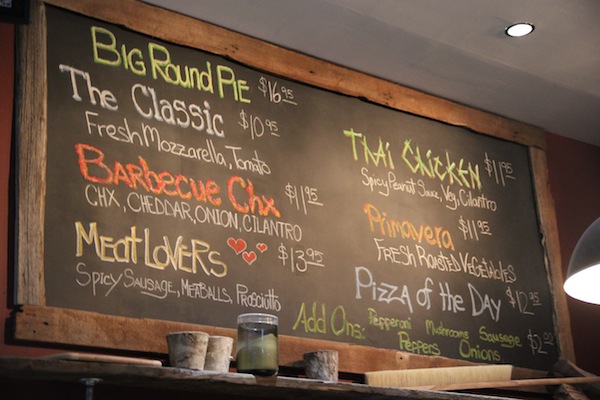 Big Round Pie $16.95
The Classic $10.95
Fresh Mozzarella, Tomato
Barbecue Chx $11.95
CHX, CHEDDAR, ONION, CILANTRO
Meat Lovers $13.95
Spicy Sausage, Meatballs, Prosciutto
Thai Chicken $11.95
Spicy Peanut Sauce, Veg, Cilantro
Primavera $11.95
Fresh Roasted Vegetables
Pizza of the Day $12.95
Add Ons: Pepperoni Mushrooms Sausage
Peppers Onions $2.00